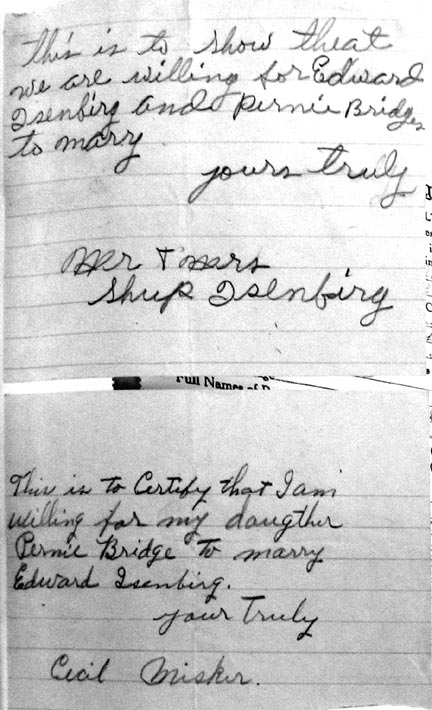 this is to show theat
we are willing for Edward
Isenbirg and Pernie Bridges
to marry
yours truly
Mr + Mrs
Shup Isenbirg
Full Names of
This is to Certify that I am
willing for my daugther
Pernie Bridge to marry
Edward Isenbirg.
your Truly
Cecil Misker.